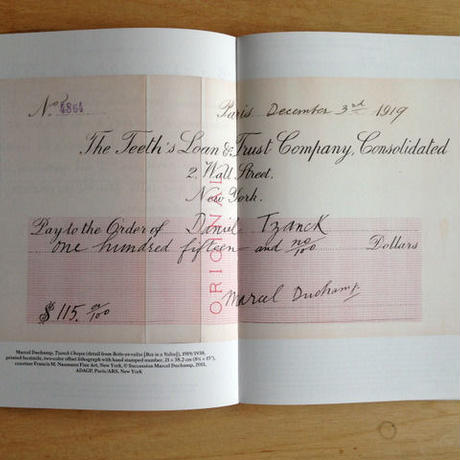 No 4864
Paris December 3rd 1919
The Teeth's Loan & Trust Company, Consolidated
2 Wall Street.
New York.
Pay to the Order of Daniel Tzanck
one hundred fifteen and no/100 Dollars
ORIGINAL
$ 115. 00/100
Marcel Duchamp
Marcel Duchamp, Tzanck Cheque (detail from Boîte-en-valise [Box in a Valise]), 1919/1938,
printed facsimile, two-color offset lithograph with hand stamped number, 21 × 38.2 cm (8¼ × 15"),
courtesy Francis M. Naumann Fine Art, New York, © Succession Marcel Duchamp, 2011,
ADAGP, Paris/ARS, New York